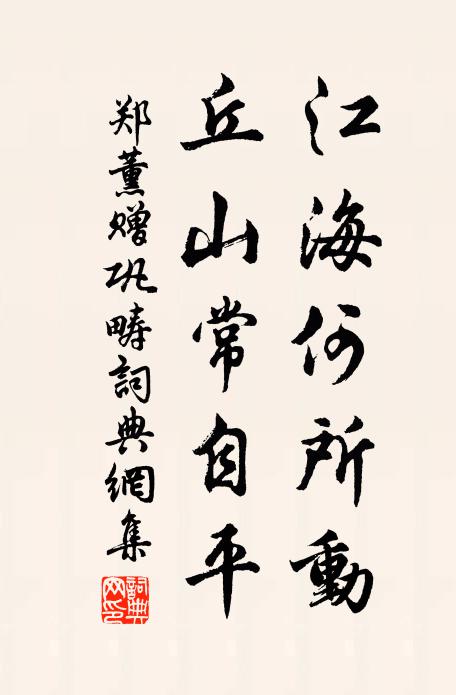 江海何所動
丘山常自平
郑薰赠巩畴詞典網集
詞典網印